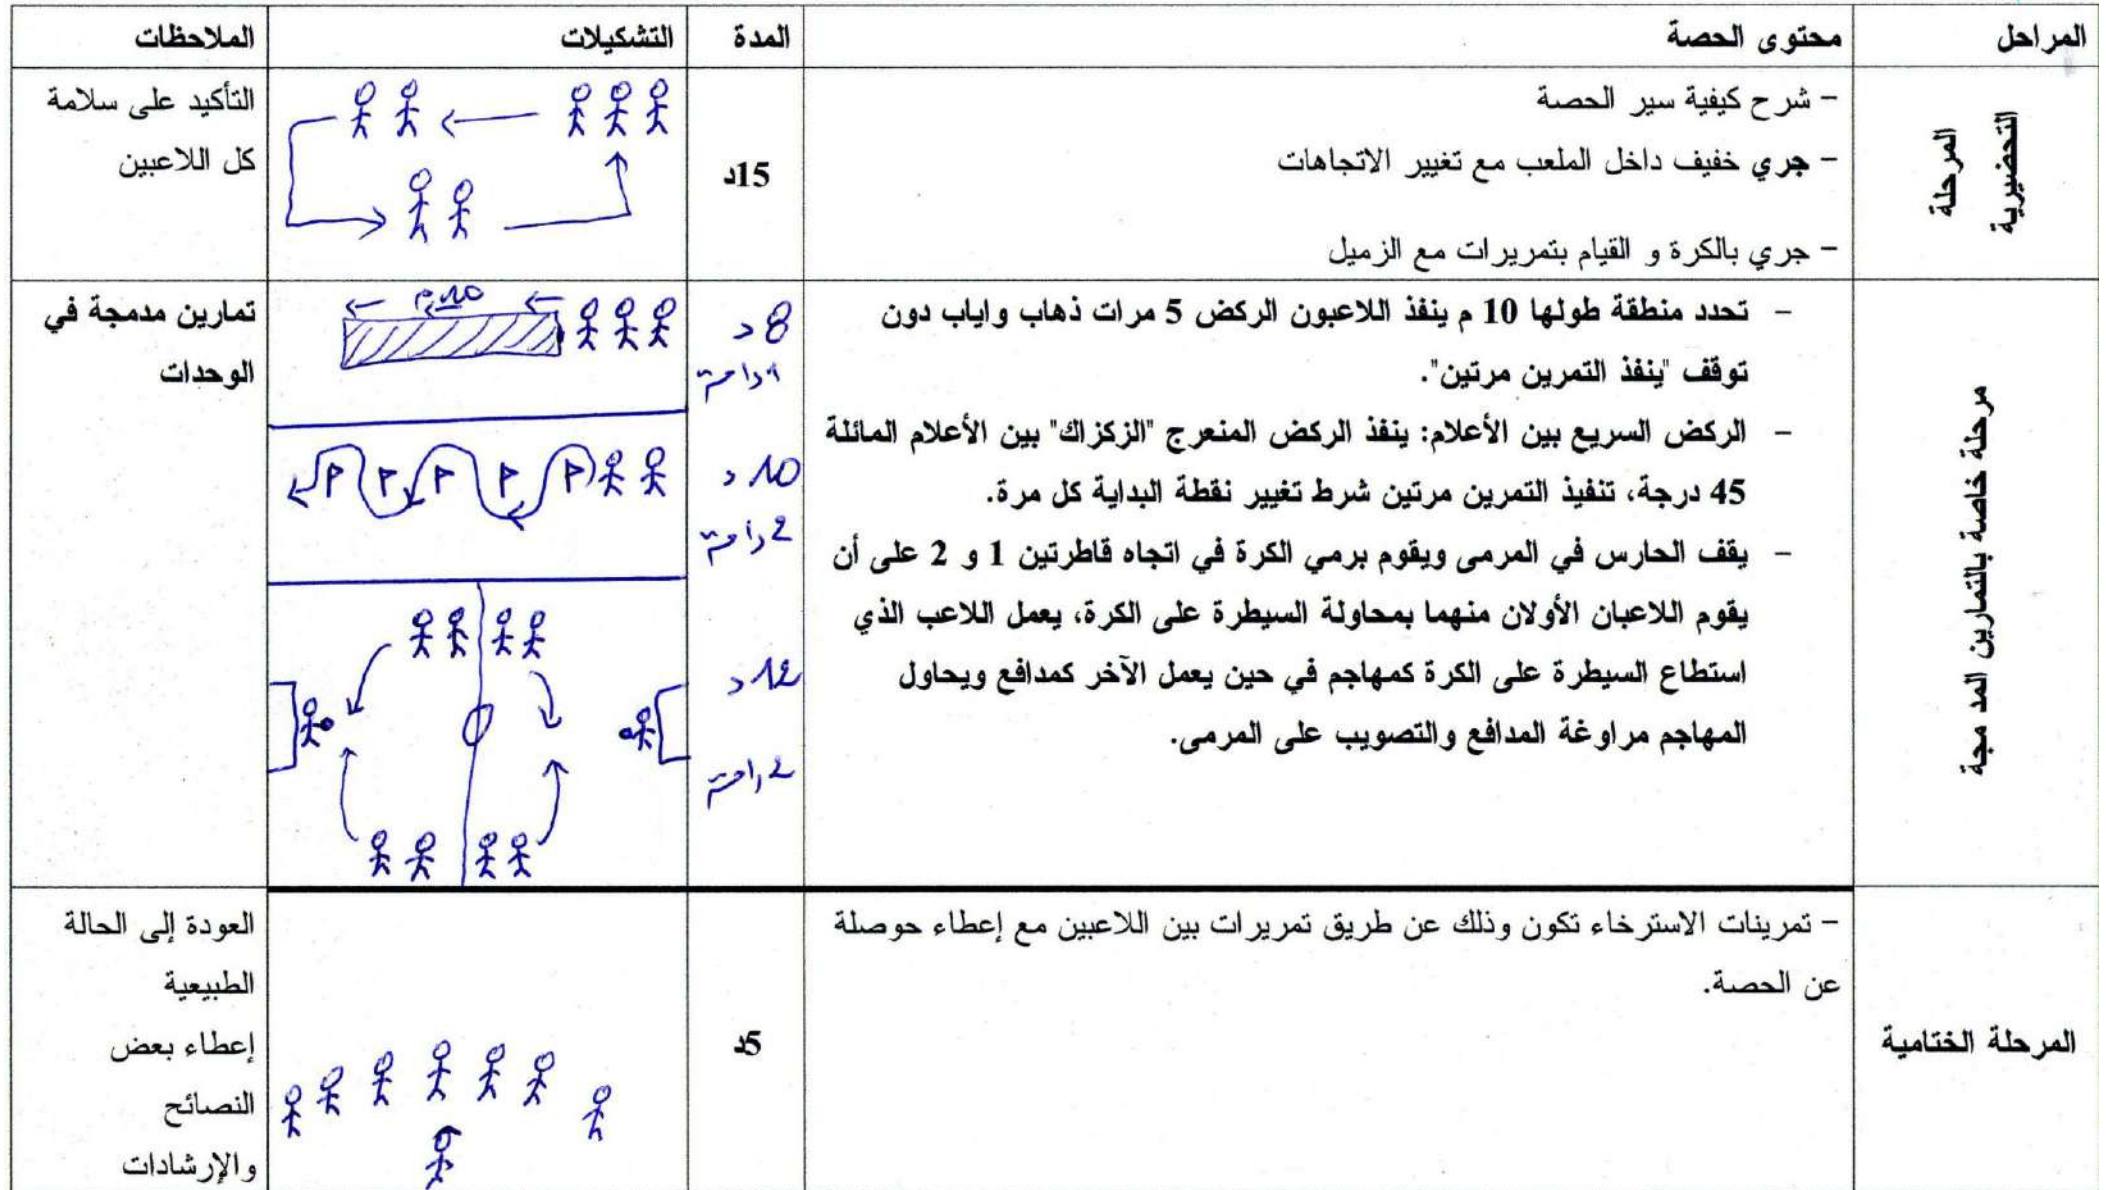 المراحل
محتوى الحصة
المدة
التشكيلات
الملاحظات
المرحلة
التحضيرية
– شرح كيفية سير الحصة
– جري خفيف داخل الملعب مع تغيير الاتجاهات
– جري بالكرة و القيام بتمريرات مع الزميل
15د
التأكيد على سلامة
كل اللاعبين
مرحلة خاصة بالتمارين المد مجة
– تحدد منطقة طولها 10 م ينفذ اللاعبون الركض 5 مرات ذهاب واياب دون
توقف "ينفذ التمرين مرتين".
– الركض السريع بين الأعلام: ينفذ الركض المنعرج "الزكزاك" بين الأعلام المائلة
45 درجة، تنفيذ التمرين مرتين شرط تغيير نقطة البداية كل مرة.
– يقف الحارس في المرمى ويقوم برمي الكرة في اتجاه قاطرتين 1 و 2 على أن
يقوم اللاعبان الأولان منهما بمحاولة السيطرة على الكرة، يعمل اللاعب الذي
استطاع السيطرة على الكرة كمهاجم في حين يعمل الآخر كمدافع ويحاول
المهاجم مراوغة المدافع والتصويب على المرمى.
8 د
راحة
10 د
2 راحة
12 د
2 راحة
10 م
تمارين مدمجة في
الوحدات
المرحلة الختامية
– تمرينات الاسترخاء تكون وذلك عن طريق تمريرات بين اللاعبين مع إعطاء حوصلة
عن الحصة.
5د
العودة إلى الحالة
الطبيعية
إعطاء بعض
النصائح
والإرشادات